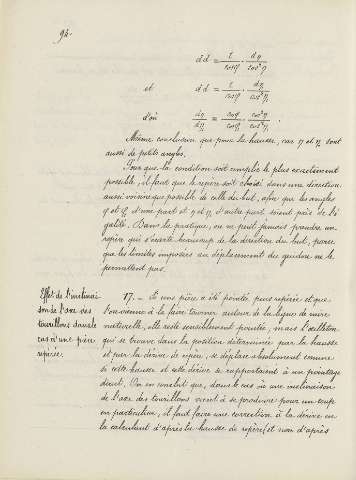 94.
dd = l/cos φ · dη/cos² η
et dd = l/cos φ₁ · dη₁/cos² η₁
d'où dη/dη₁ = cos φ/cos φ₁ · cos² η/cos² η₁ .
Même conclusion que pour la hausse, car η et η₁ sont
aussi de petits angles.
Pour que la condition soit remplie le plus exactement
possible, il faut que le repère soit choisi dans une direction
aussi voisine que possible de celle du but, afin que les angles
φ et φ₁ d'une part et η et η₁ d'autre part soient près de l'é-
galité. Dans la pratique, on ne peut jamais prendre un
repère qui s'écarte beaucoup de la direction du but, parce
que les limites imposées au déplacement du guidon ne le
permettent pas.
Effet de l'inclinai-
son de l'axe des
tourillons dans le
cas d'une pièce
repérée.
17. — Si une pièce a été pointée, puis repérée et que
l'on vienne à la faire tourner autour de la ligne de mire
naturelle, elle reste sensiblement pointée, mais l'œilleton
qui se trouve dans la position déterminée par la hausse
et par la dérive de repère, se déplace absolument comme
si cette hausse et cette dérive se rapportaient à un pointage
direct. On en conclut que, dans le cas où une inclinaison
de l'axe des tourillons vient à se produire pour un coup
en particulier, il faut faire une correction à la dérive en
la calculant d'après la hausse de repère (et non d'après